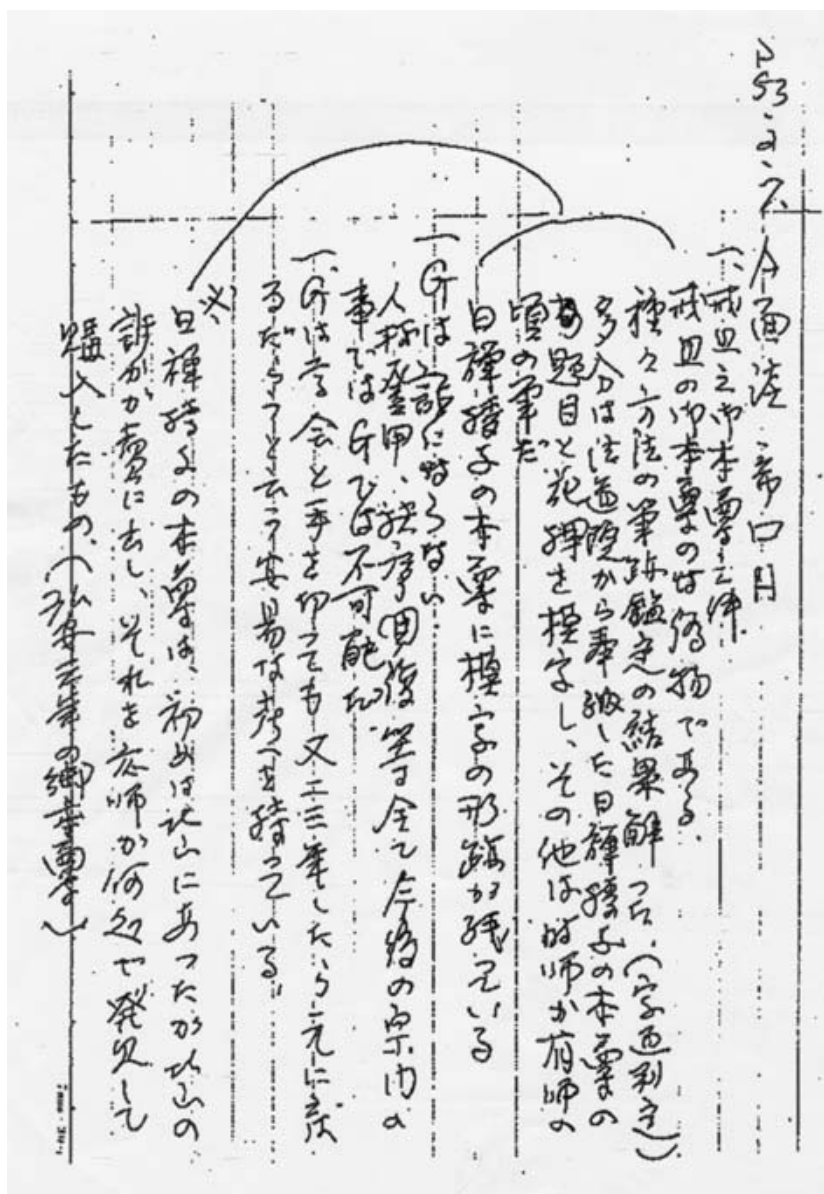 S53.2.7、A面談 帝口H
一、戒旦之御本尊之件
戒旦の御本尊のは偽物である。
種々方法の筆跡鑑定の結果解った。(字画判定)
多分は法道院から奉納した日禅授与の本尊の
題目と花押を模写し、その他は時師か有師の
頃の筆だ。
日禅授与の本尊に模写の形跡が残っている
一、Gは話にならない。
人材登用、秩序回復等全て今後の宗内の
事ではGでは不可能だ。
一、Gは学会と手を切っても又二三年したら元に戻
るだろうと云う安易な考えを持っている。
※
日禅授与の本尊は、初めは北山にあったが北山の
誰かが売に出し、それを応師が何処で発見して
購入したもの。(弘安三年の御本尊)